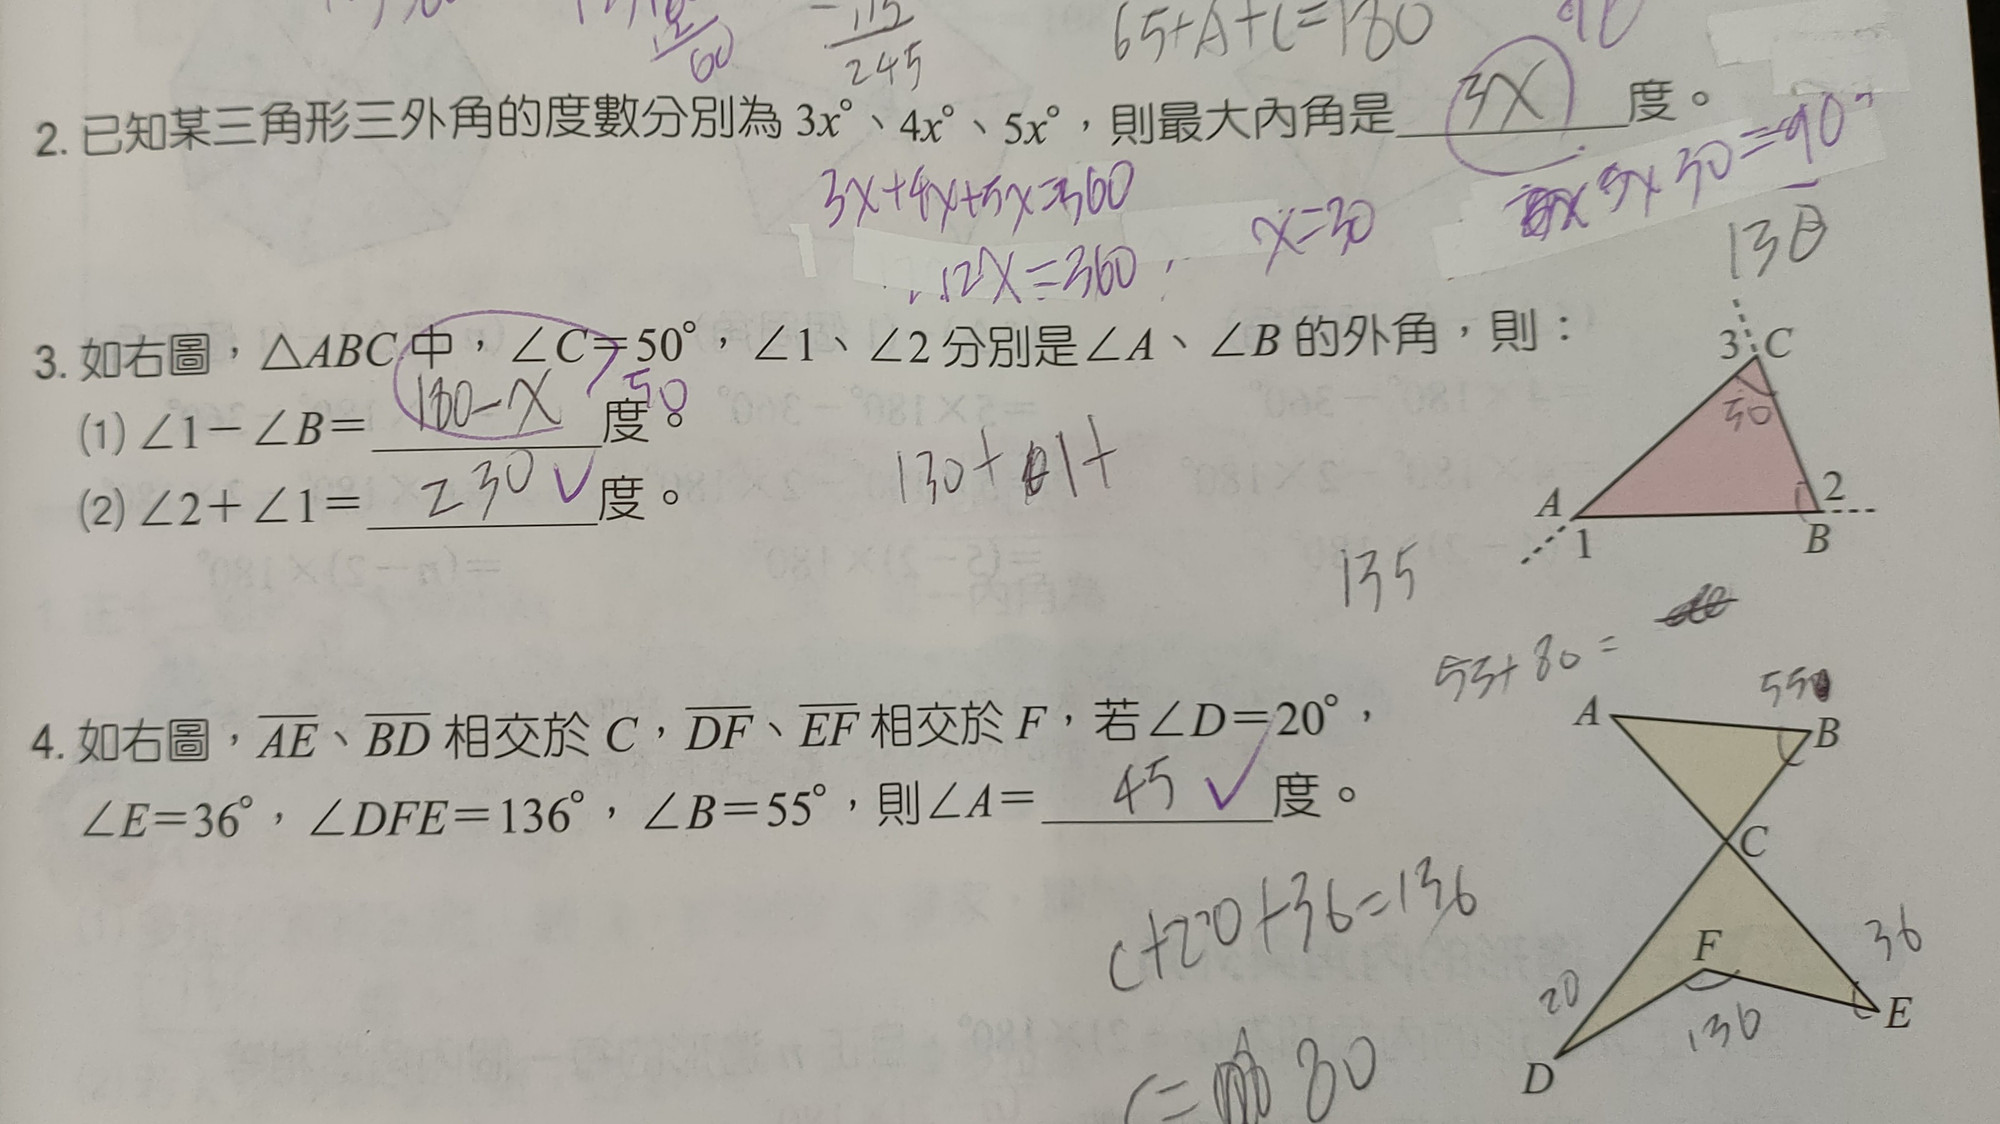 12
60
112
245
65+A+C=180
90
2. 已知某三角形三外角的度數分別為 3x°、4x°、5x°，則最大內角是 3X 度。
3x+4x+5x=360
12X=360
x=30
3x30=90°
130
3. 如右圖，△ABC 中，∠C=50°，∠1、∠2 分別是∠A、∠B 的外角，則：
(1) ∠1－∠B= 180-X 度。
50
(2) ∠2＋∠1= 230 ✓ 度。
130+ 1+
3 C
50
A
1
2
B
135
55+80=
4. 如右圖，AE、BD 相交於 C，DF、EF 相交於 F，若∠D=20°，
∠E=36°，∠DFE=136°，∠B=55°，則∠A= 45 ✓ 度。
C+20+36=136
C= 80
55
A
B
C
F
36
20
136
E
D